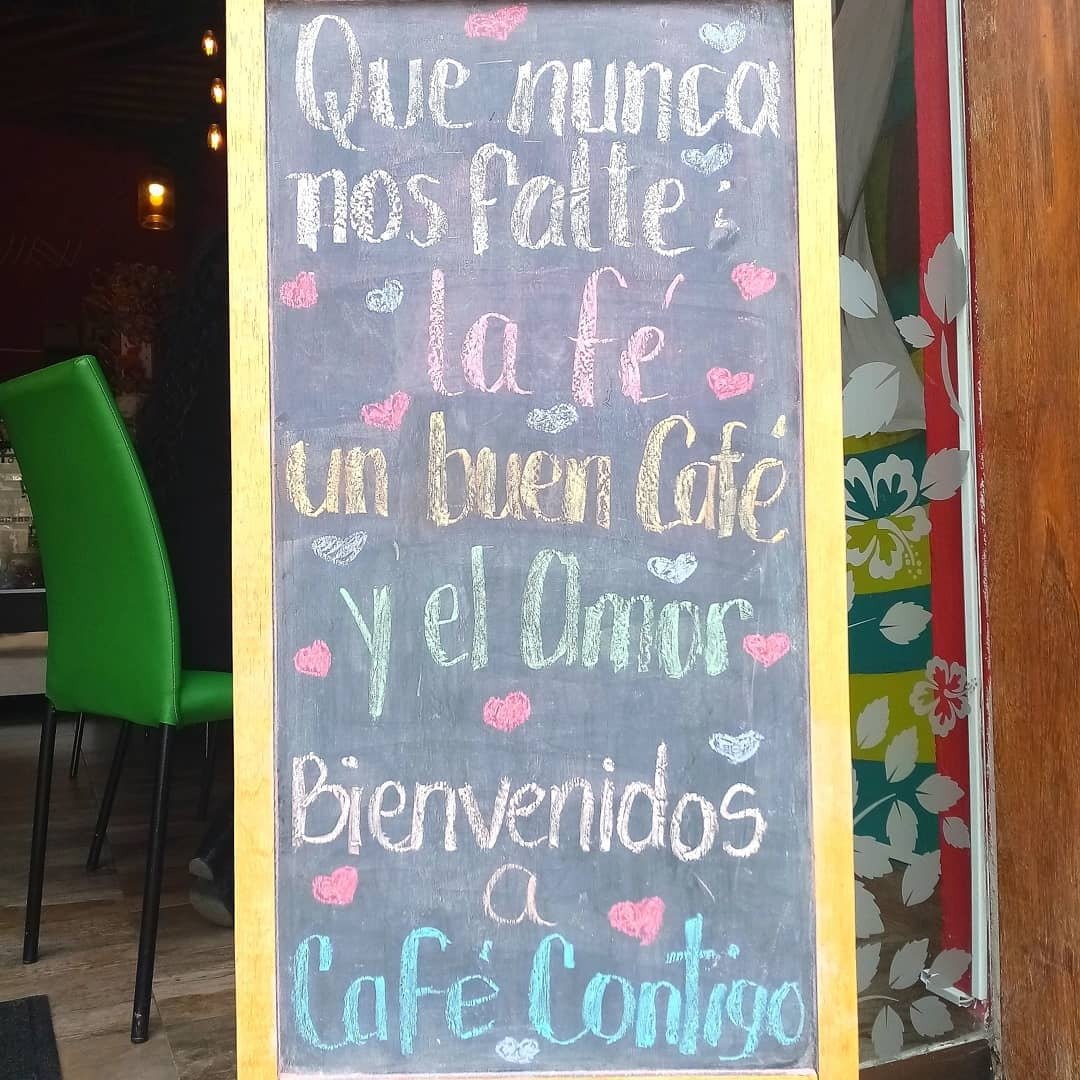 Que nunca
nos falte:
la fé
un buen Café
y el Amor
Bienvenidos
a
Café Contigo